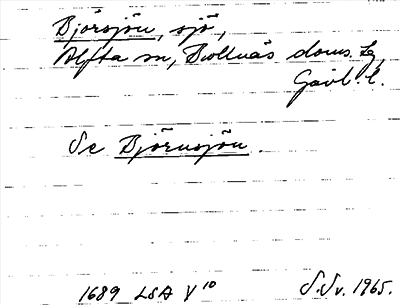 Björsjön, sjö,
Alfta sn, Bollnäs doms. tg,
Gävl. l.
Se Björnsjön.
1689 LSA V 10
S. Sv. 1965.